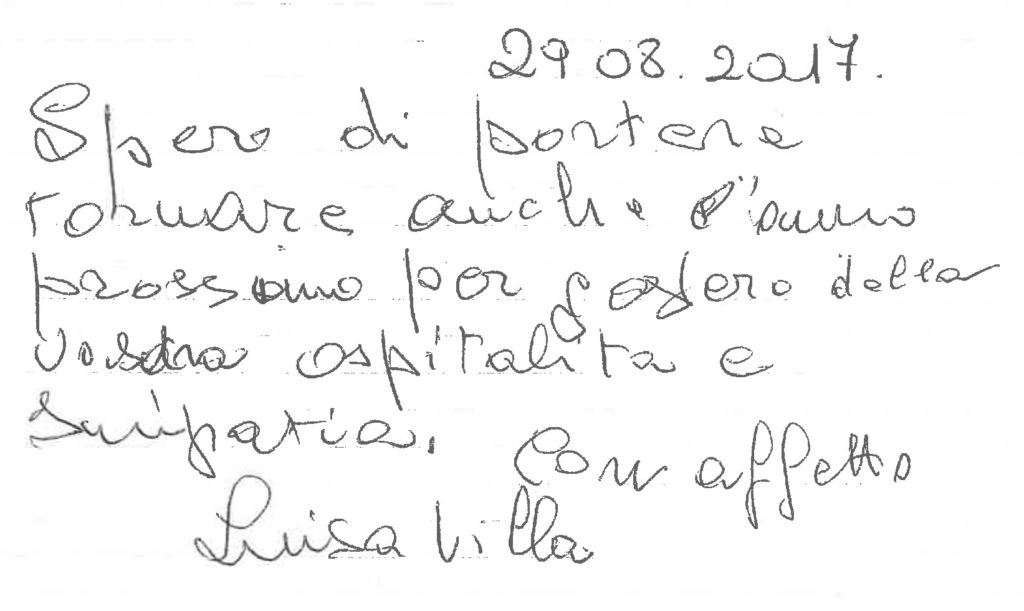 29 08. 2017.
Spero di portere
tornare anche l'anno
prossimo per godere della
vostra ospitalita e
simpatia.
Con affetto
Luisa Villa